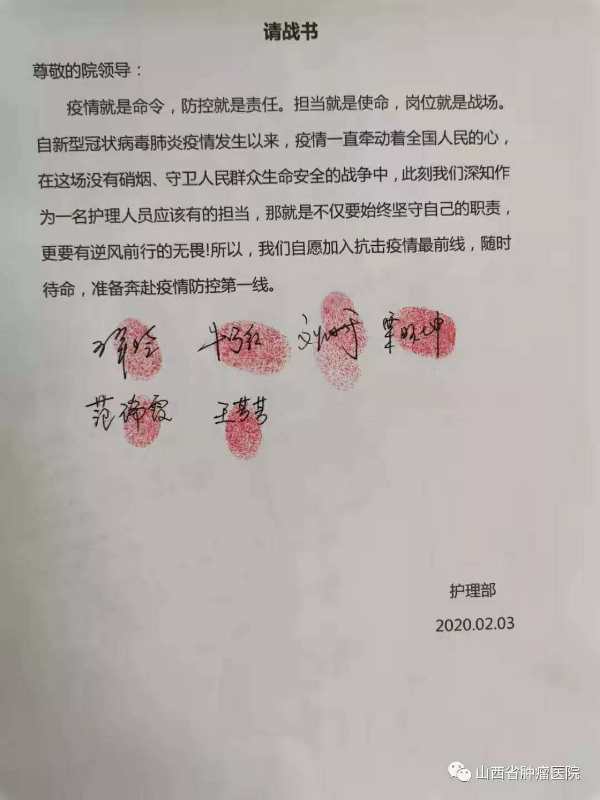 请战书
尊敬的院领导：
疫情就是命令，防控就是责任。担当就是使命，岗位就是战场。
自新型冠状病毒肺炎疫情发生以来，疫情一直牵动着全国人民的心，
在这场没有硝烟、守卫人民群众生命安全的战争中，此刻我们深知作
为一名护理人员应该有的担当，那就是不仅要始终坚守自己的职责，
更要有逆风前行的无畏!所以，我们自愿加入抗击疫情最前线，随时
待命，准备奔赴疫情防控第一线。
范瑞霞 王芳芳
护理部
2020.02.03
山西省肿瘤医院